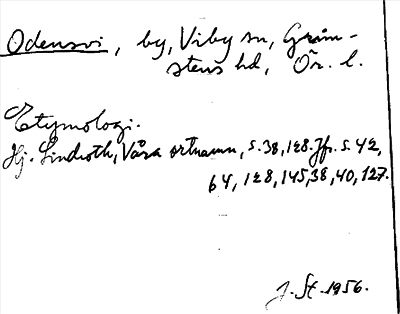 Odensvi, by, Viby sn, Grim-
stens hd, Ör. l.
Etymologi.
Hj. Lindroth, Våra ortnamn, s. 38, 128. Jfr. s. 42,
64, 128, 145, 38, 40, 127.
J. St. 1956.